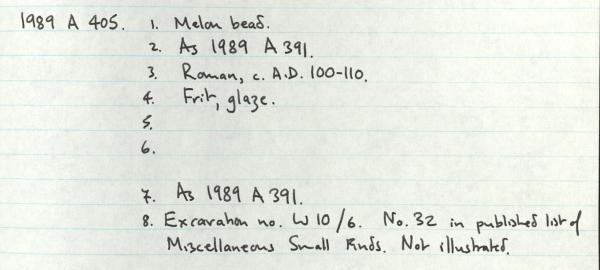 1989 A 405. 1. Melon bead.
2. As 1989 A 391.
3. Roman, c. A.D. 100-110.
4. Frit, glaze.
5.
6.
7. As 1989 A 391.
8. Excavation no. W 10/6. No. 32 in published list of
Miscellaneous Small Finds. Not illustrated.